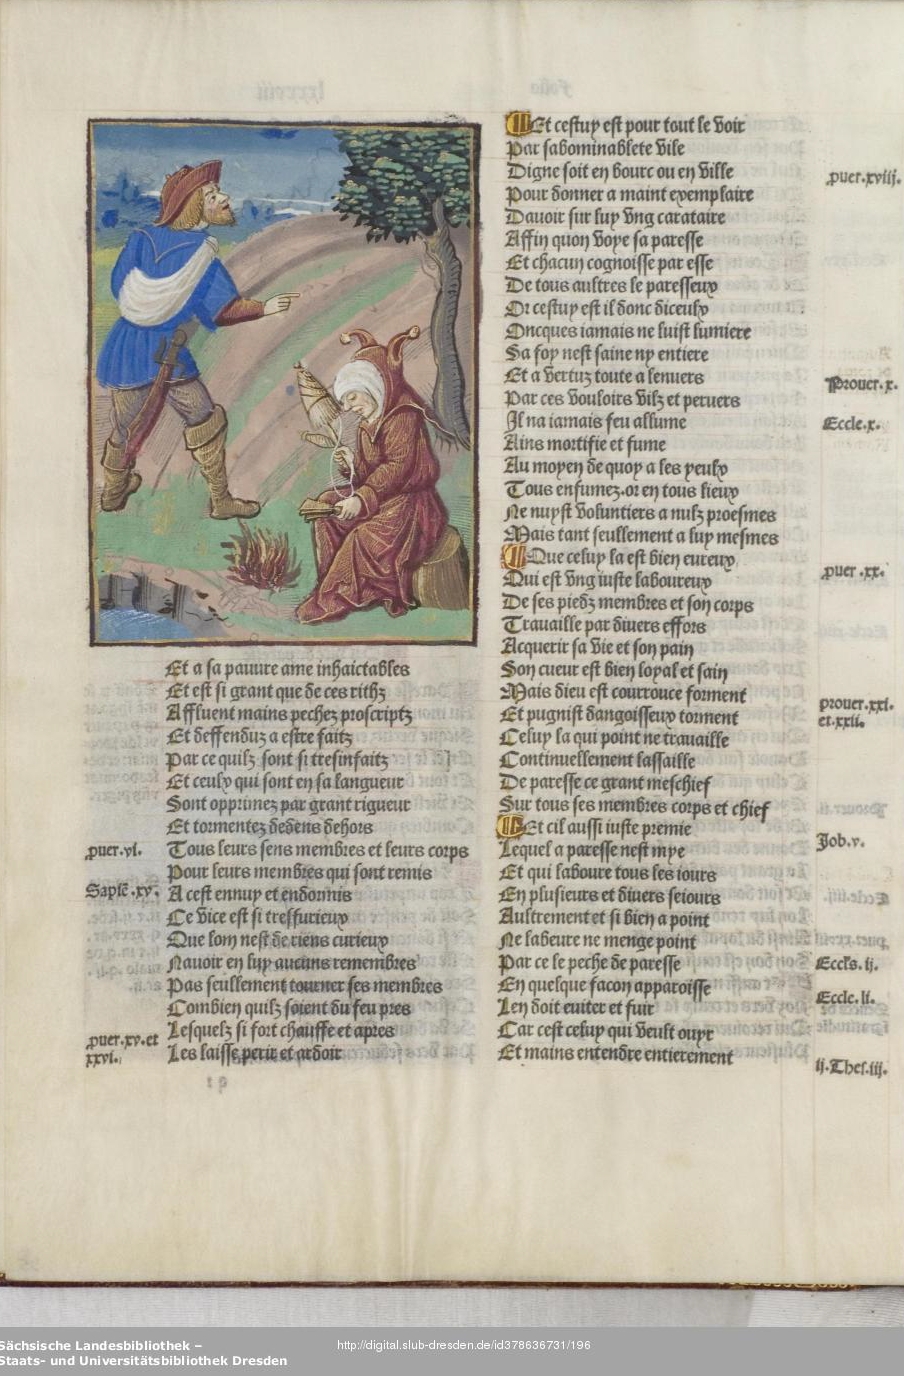 Et a sa pauvre ame inhaictables
Et est si grant que de ces rithz
Affluent mains pechez proscriptz
Et deffenduz a estre faitz
Par ce quilz sont si tresinfaitz
Et ceulx qui sont en sa langueur
Sont opprimez par grant rigueur
Et tormentez dedens dehors
puer.vi.
Tous leurs sens membres et leurs corps
Pour leurs membres qui sont remis
Sapiē.xv.
A cest ennuy et endormis
Ce vice est si tresfurieux
Que lom nest de riens curieux
Navoir en luy aucuns remembres
Pas seullement tourner ses membres
Combien quilz soient du feu pres
puer.xv.et
xxvi.
Lesquelz si fort chauffe et apres
Les laisse perir et ardoir
Et cestuy est pour tout le voir
Par sabominablete vile
Digne soit en bourc ou en ville
puer.xviij.
Pour donner a maint exemplaire
Davoir sur luy vng carataire
Affin quon voye sa paresse
Et chacun cognoisse par esse
De tous aultres le paresseux
Or cestuy est il donc diceulx
Oncques iamais ne luist lumiere
Sa foy nest saine ny entiere
Et a vertuz toute a lenuers
Prouer.x.
Par ces vouloirs vilz et peruers
Il na iamais feu allume
Eccle.x.
Ains mortifie et fume
Au moyen de quoy a les yeulx
Tous enfumez.or en tous lieux
Ne nuyst voluntiers a nulz proesmes
Mais tant seullement a luy mesmes
Que celuy la est bien eureux
puer.xx.
Qui est vng iuste laboureux
De ses piedz membres et son corps
Travaille par divers effors
Acquerir sa vie et son pain
Son cueur est bien loyal et sain
Mais dieu est courrouce forment
prouer.xxi.
et.xxii.
Et pugnist dangoisseux torment
Celuy la qui point ne travaille
Continuellement lassaille
De paresse ce grant meschief
Sur tous ses membres corps et chief
Et cil aussi iuste premie
Job.v.
Lequel a paresse nest mye
Et qui laboure tous les iours
En plusieurs et divers seiours
Aultrement et si bien a point
Ne labeure ne menge point
Par ce le peche de paresse
Eccls.ij.
En quelque facon apparoisse
Eccle.li.
Len doit euiter et fuir
Car cest celuy qui veult ouyr
Et mains entendre entierement
ij.Thes.iij.
Sächsische Landesbibliothek –
Staats- und Universitätsbibliothek Dresden
http://digital.slub-dresden.de/id378636731/196